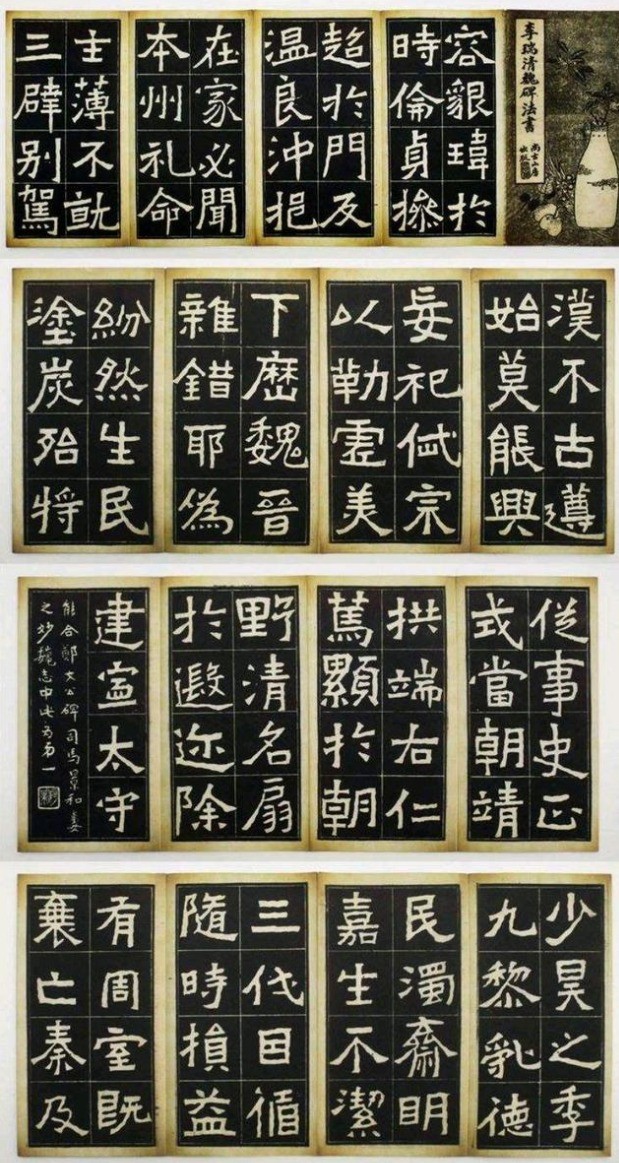 李瑞清魏碑法書
尚古山房
出版
容貌瑋於
時倫貞操
超於門及
温良沖挹
在家必聞
本州礼命
主薄不就
三辟别駕
漢不古遵
始莫能興
妄祀弑宗
以勒虚美
下歷魏晉
雜錯耶偽
紛然生民
塗炭殆将
從事史正
式當朝靖
拱端右仁
篤顯於朝
野清名扇
於遐迩除
建寧太守
能合鄭大公碑司馬景和妻
之妙魏志中此為第一
少昊之季
九黎亂德
民濁齋明
嘉生不潔
三代因循
隨時損益
有周室既
衰亡秦及